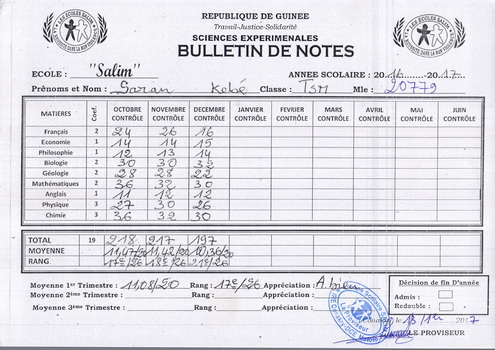 REPUBLIQUE DE GUINEE
Travail-Justice-Solidarité
SCIENCES EXPERIMENALES
BULLETIN DE NOTES
ECOLE : "Salim" ANNEE SCOLAIRE : 2016 2017
Prénoms et Nom : Saran Kebé Classe : TSM Mle : 20779
MATIERES Coef. OCTOBRE CONTRÔLE NOVEMBRE CONTRÔLE DECEMBRE CONTRÔLE JANVIER CONTRÔLE FEVRIER CONTRÔLE MARS CONTRÔLE AVRIL CONTRÔLE MAI CONTRÔLE JUIN CONTRÔLE
Français 2 24 26 16
Economie 1 14 14 15
Philosophie 1 12 13 14
Biologie 2 30 30
Géologie 2 28 28 22
Mathématiques 2 36 32 30
Anglais 1 11 12 12
Physique 3 27 30 26
Chimie 3 36 32 30
TOTAL 19 218 217 197
MOYENNE 11,47/20 11,42/20 10,36/20
RANG 17e/26 18e/26 21e/26
Moyenne 1er Trimestre : 11,08/20 Rang : 17e/26 Appréciation : A.bien
Moyenne 2ème Trimestre : Rang : Appréciation :
Moyenne 3ème Trimestre : Rang : Appréciation :
Décision de fin D'année
Admis :
Redouble :
2017
LE PROVISEUR
Le Proviseur